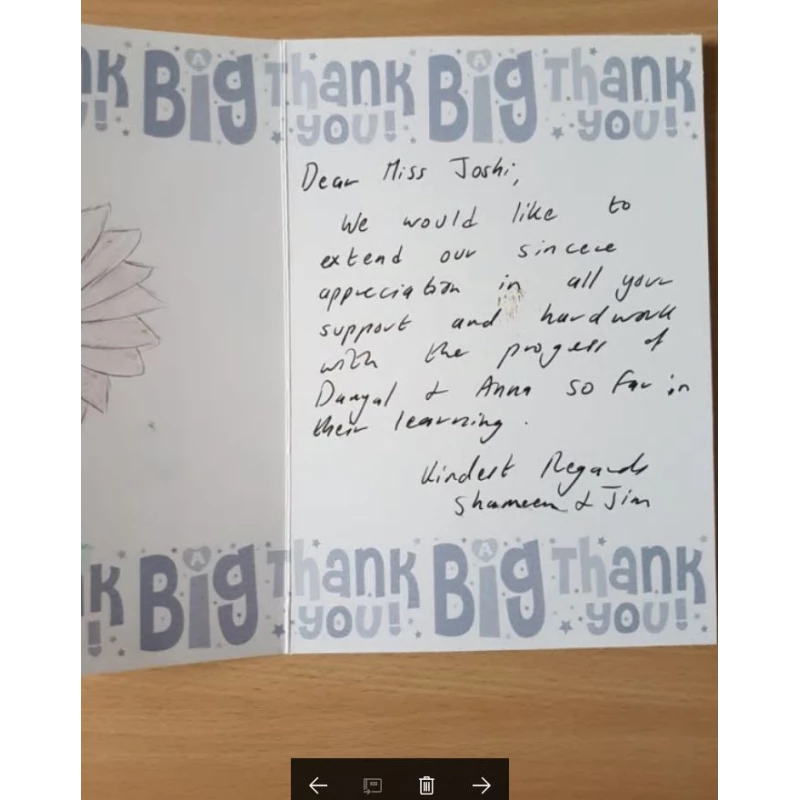 A Big Thank A Big Thank
you! you!
Dear Miss Joshi,
We would like to
extend our sincere
appreciation in all your
support and hardwork
with the progess of
Danyal & Anna so far in
their learning.
Kindest Regards
Shameem & Jim
A Big Thank A Big Thank
you! you!